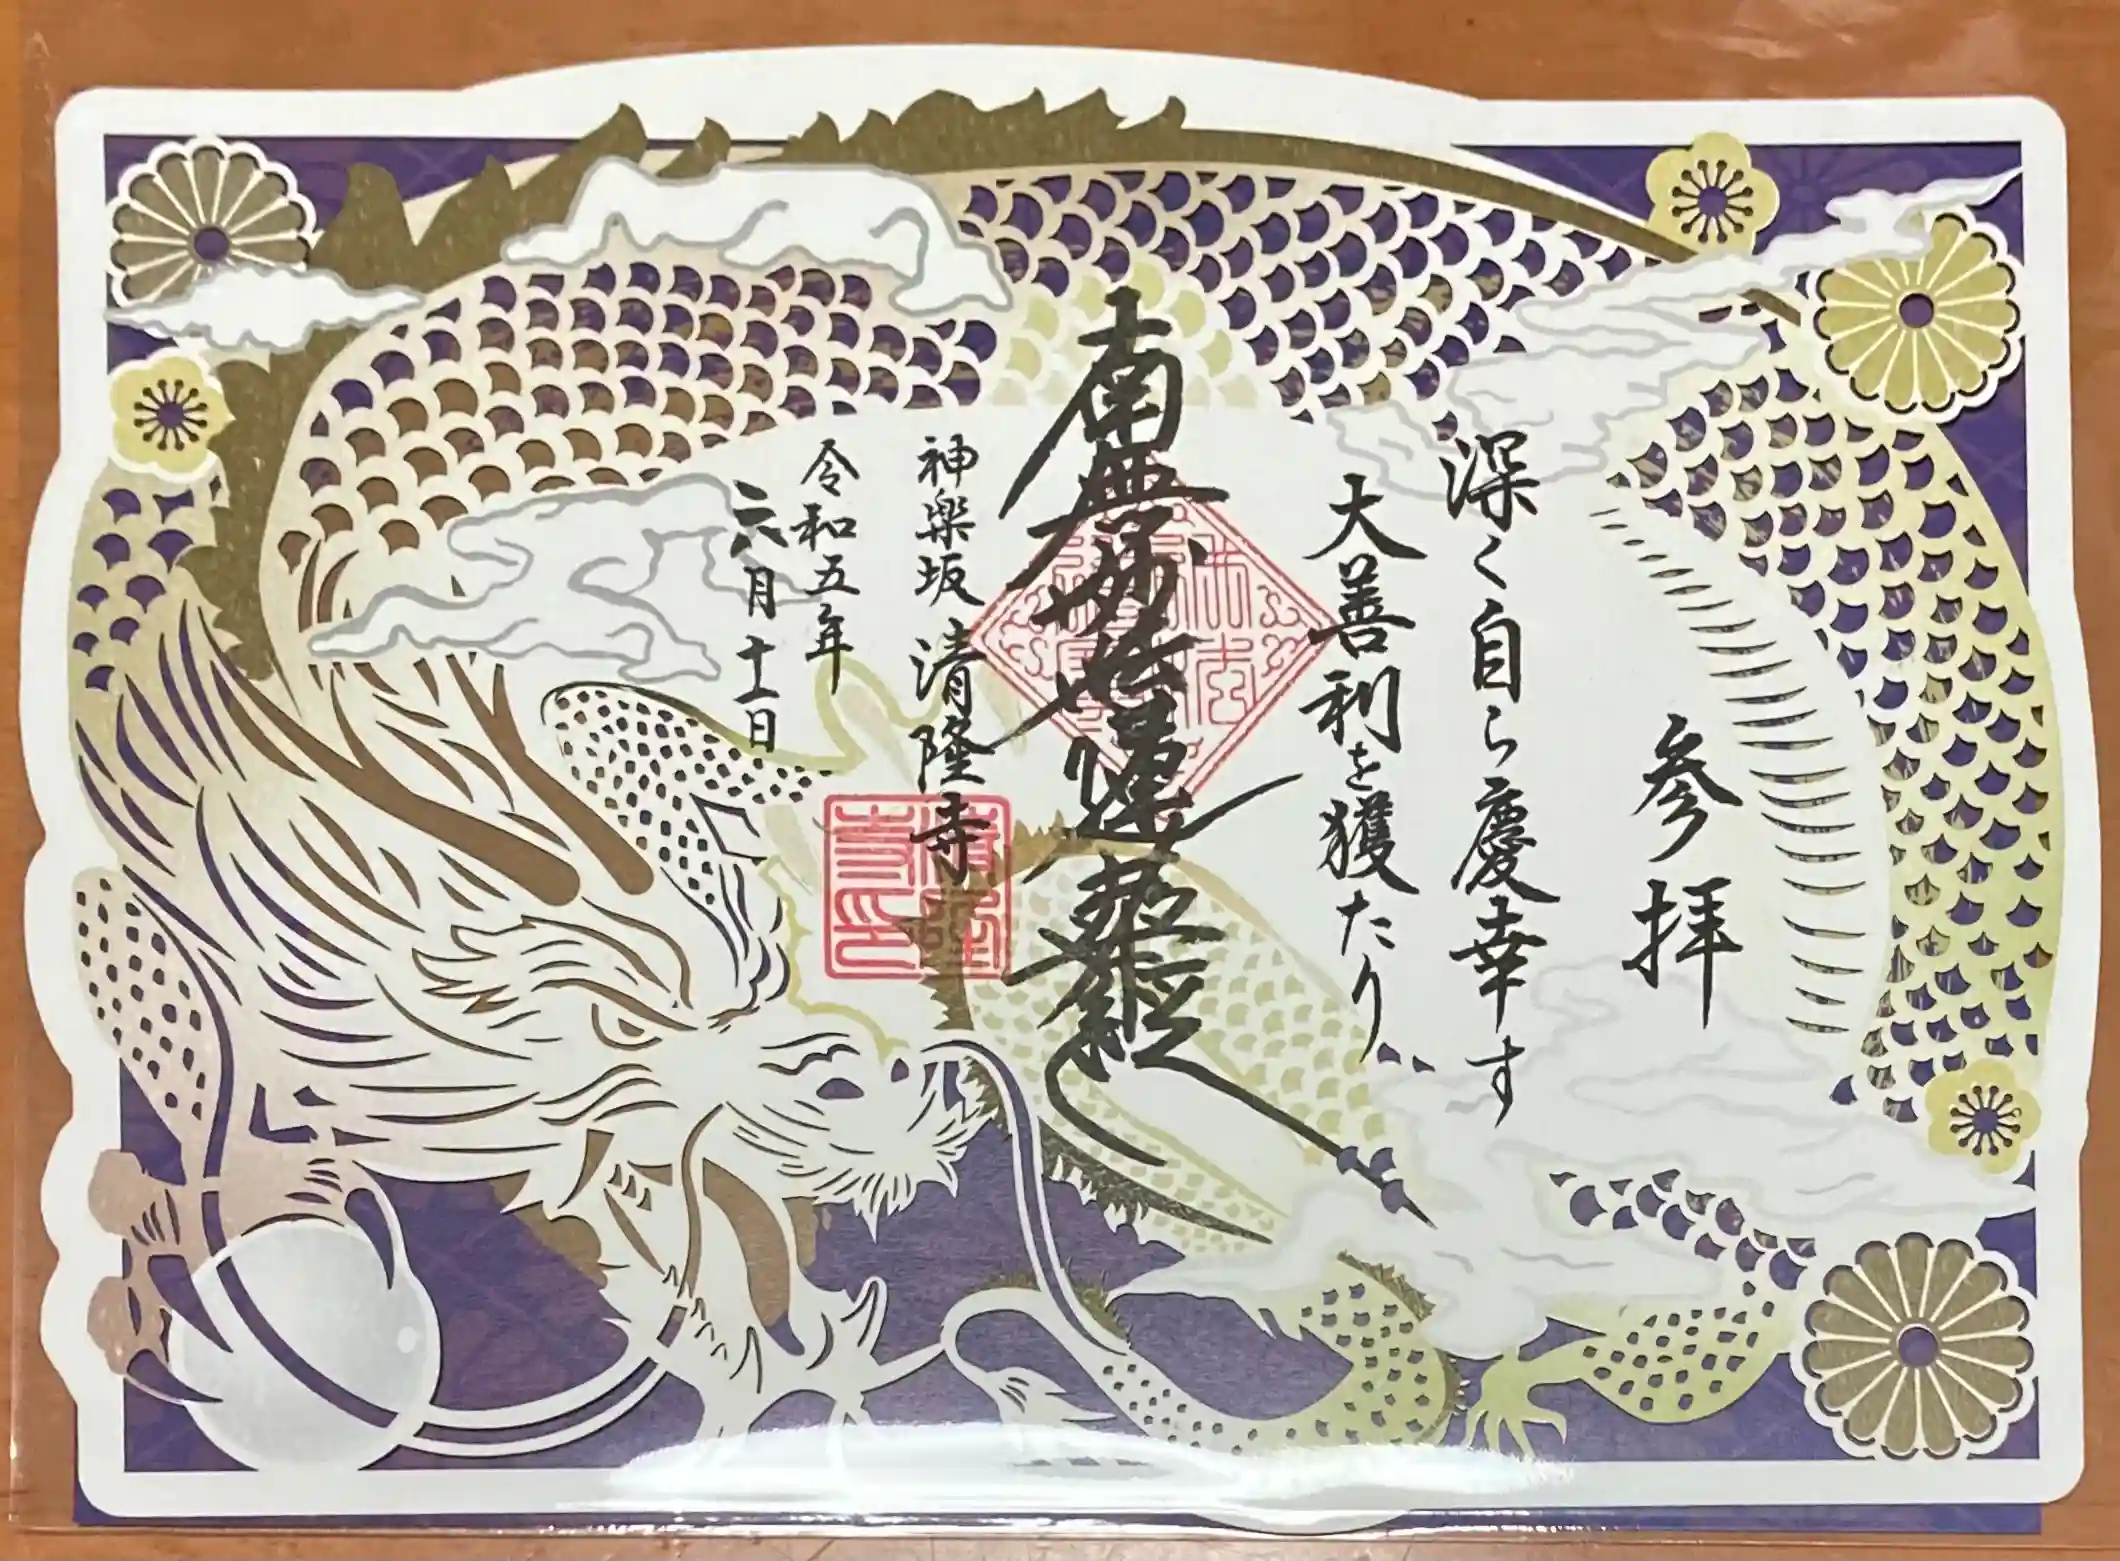 参拝
深く自ら慶幸す
大善利を獲たり
南無妙法蓮華経
神楽坂 清隆寺
令和五年
六月十一日